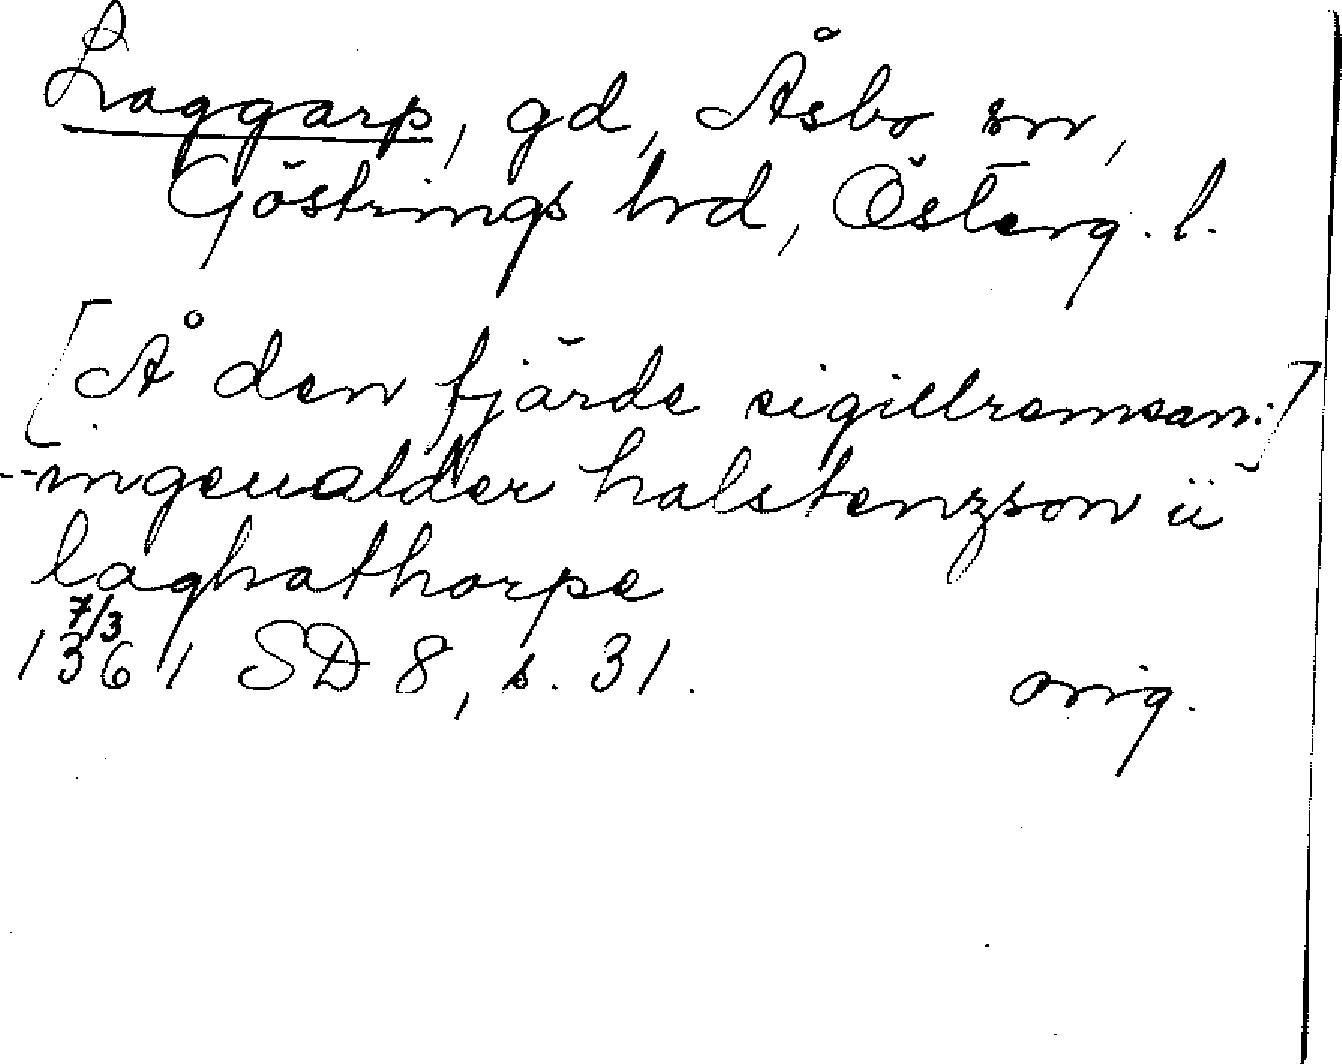 Laggarp, gd, Åsbo sn,
Göstrings hrd, Österg. l.
[Å den fjärde sigillremsan:]
--ingeualder halstenzson ii
laghathorpe
7/3
1361 SD 8, s. 31. orig.